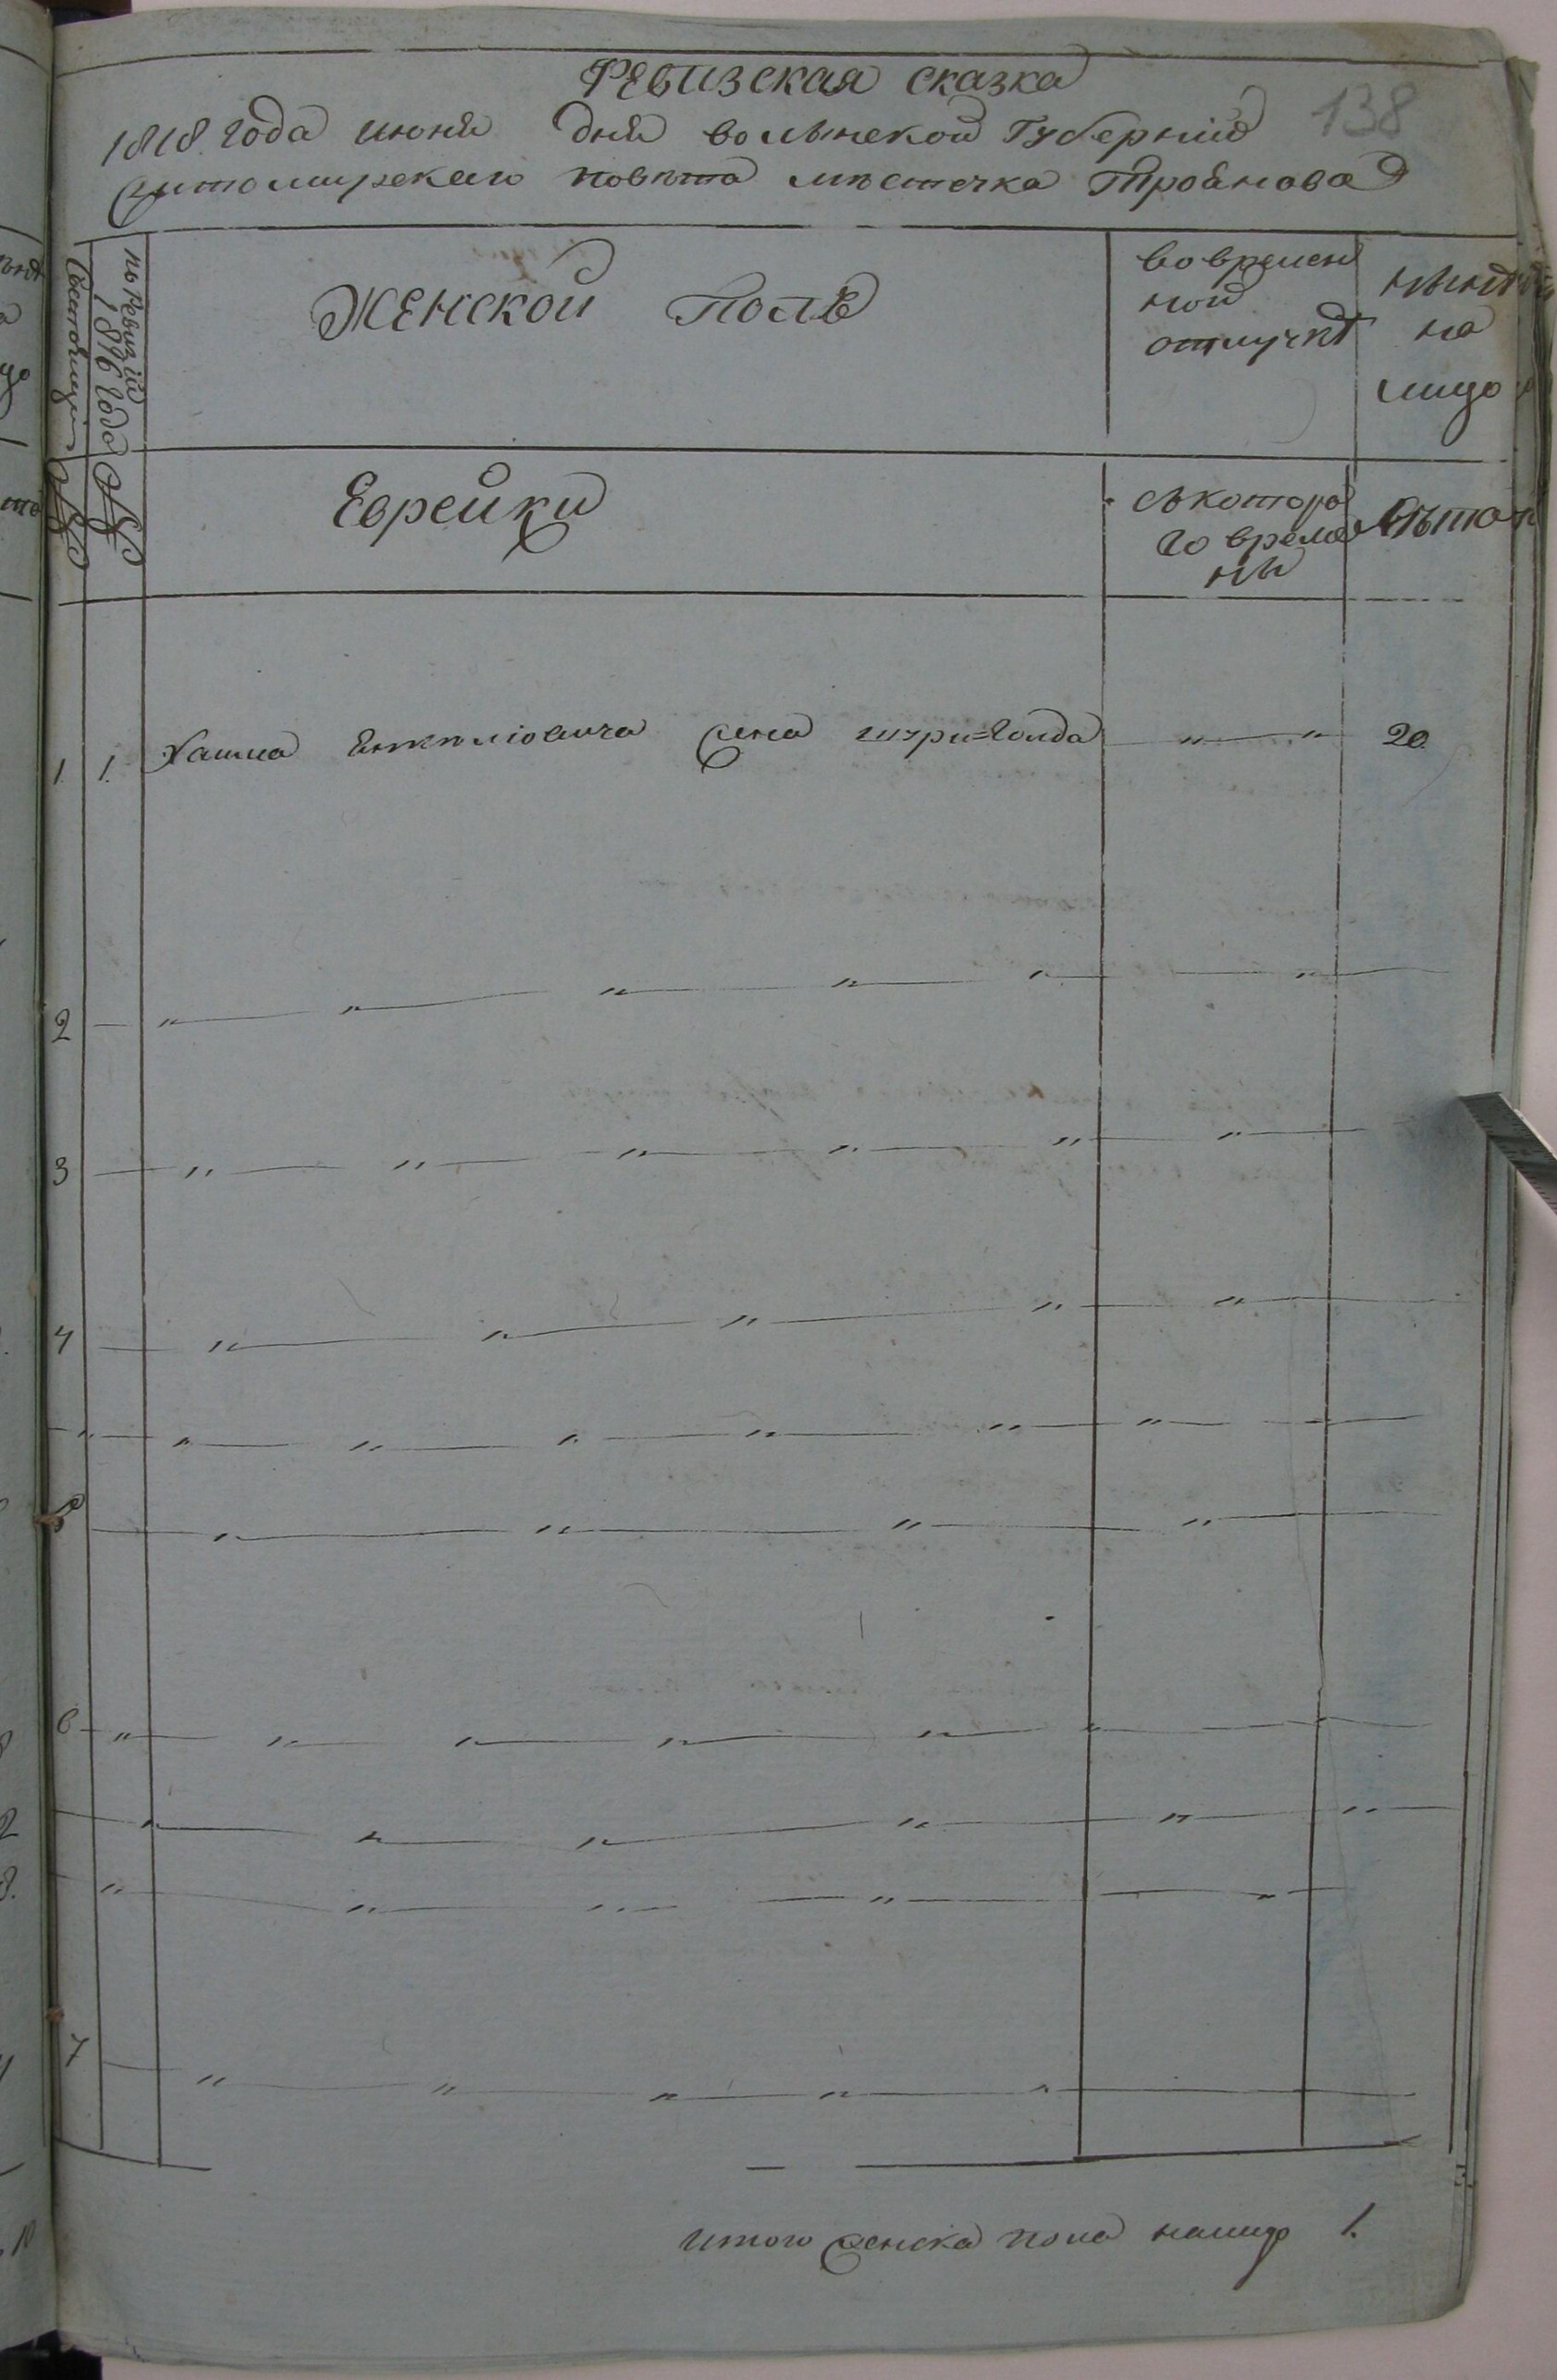 Ревизская сказка
138
1818 года июня дня волынской Губернии
житомирскаго повѣта мѣстечка Троянова
Состоящей
по Ревизіи 1816 года
Женской Полъ
во времен
ной
отлучкѣ
нынѣ
на
лицо
№
№
Еврейки
съ котора
го време
ны
лѣта
1 1. Хаима жена шпри=Голда „ „ 20
2
3
4
5
6
7
итого женска пола налицо 1.